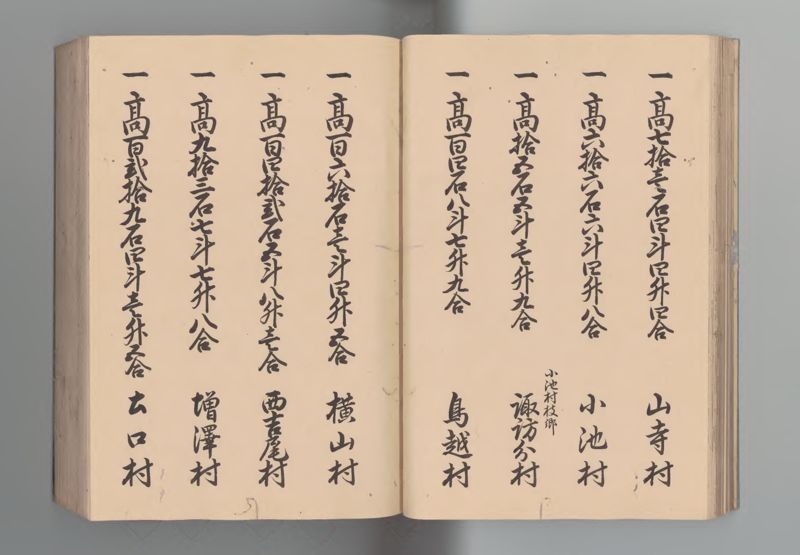 一 高七拾壱石四斗四升四合 山寺村
一 高六拾六石六斗四升八合 小池村
小池村枝郷
一 高拾五石五斗壱升九合 諏訪分村
一 高百四石八斗七升九合 鳥越村
一 高百六拾石壱斗四升五合 横山村
一 高百四拾弐石五斗八升壱合 西吉尾村
一 高九拾三石七斗七升八合 増澤村
一 高百弐拾九石四斗壱升五合 口村